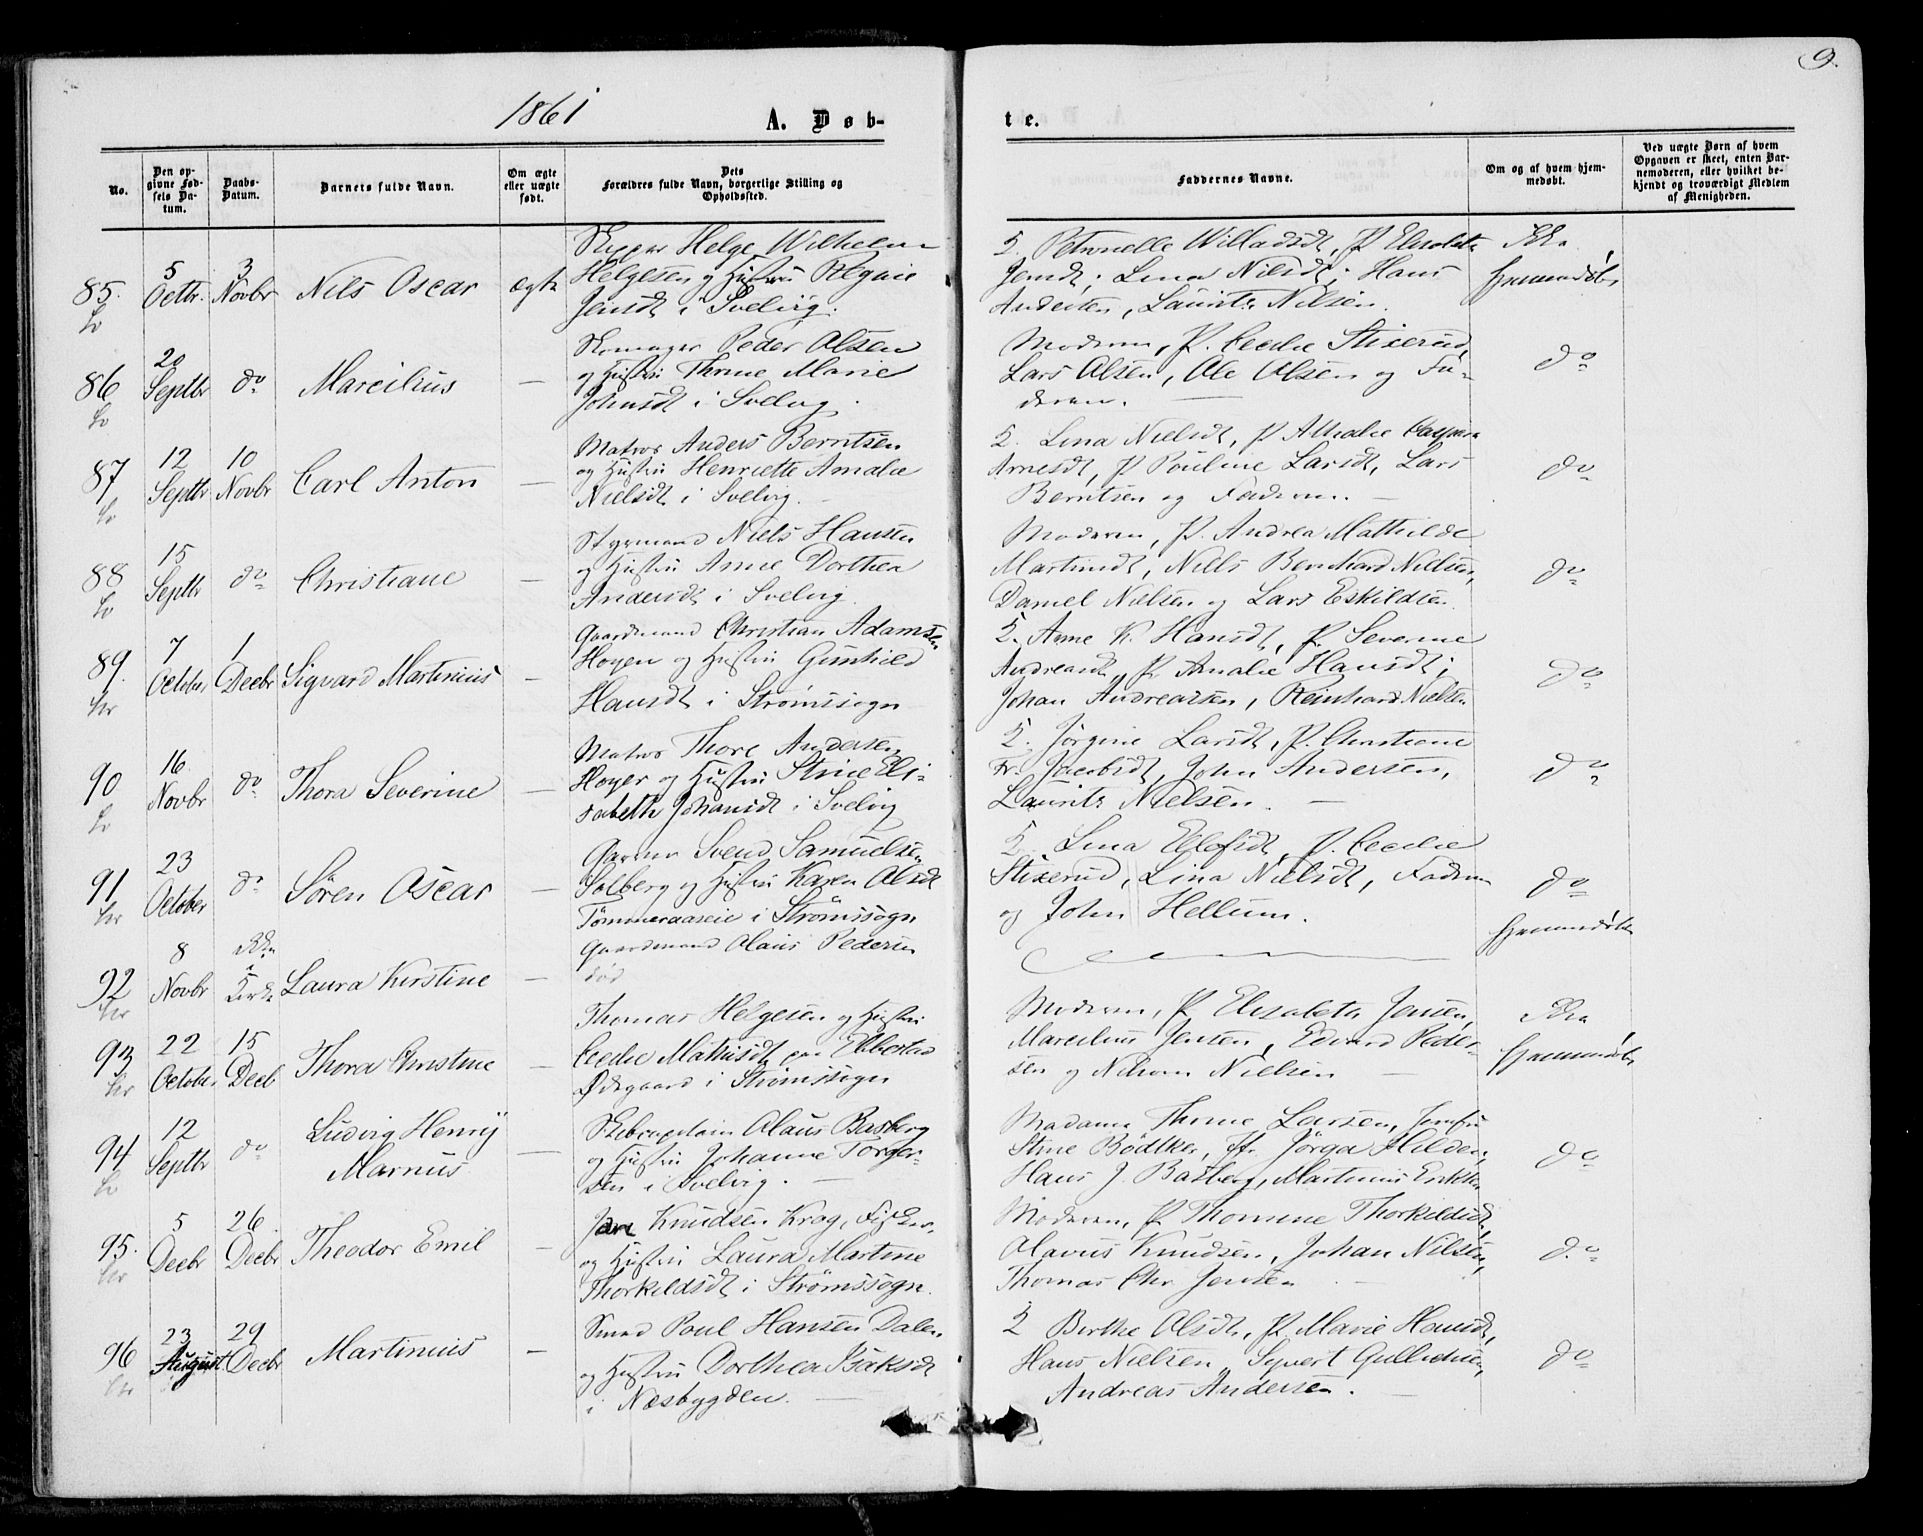 9.
1861
A. Døb-
te.
No.
Den op-
givne Fød-
sels Da-
tum.
Daabs-
Datum.
Barnets fulde Navn.
Om ægte
eller uægte
født.
Dets
Forældres fulde Navn, borgerlige Stilling og
Opholdssted.
Faddernes Navne.
Om og af hvem hjem-
medøbt.
Ved uægte Børn af hvem
Opgaven er skeet, enten Bar-
nemoderen, eller hvilket be-
kjendt og troværdigt Medlem
af Menigheden.
85.
5
Octbr.
3
Novbr
Nils Oscar
ægte
Skipper Helge Wilhelm
Helgesen og Hustru Regine
Jensdt i Svelvig.
Petronelle Willadsdt, P. Elisabeth
Jensdt, Lina Nielsdt, Hans
Andersen, Laurits Nilsen.
Ikke
hjemmedøbt
86
20
Septbr
do
Marcilius
—
Skomager Peder Olsen
og Hustru Thrine Marie
Johnsdt i Svelvig.
Moderen, P. Cecilie Stixerud,
Lars Olsen, Ole Olsen og Fa-
deren.
do
87
12
Septbr
10
Novbr
Carl Anton
—
Matros Anders Berntsen
og Hustru Henriette Amalie
Nielsdt i Svelvig.
Lina Nielsdt, P. Athalie Caspara
Arnesdt, P. Pouline Larsdt, Lars
Berntsen og Faderen.
do
88
15
Septbr
do
Christiane
—
Styrmand Niels Hansen
og Hustru Anne Dorthea
Andersdt i Svelvig.
Moderen, P. Andrea Mathilde
Martinsdt, Nills Bernhard Nielsen,
Daniel Nielsen og Lars Eskildsen.
do
89.
7
October
1
Decbr
Sigvard Martinius
—
Gaardmand Christian Adamsen
Hoyen og Hustru Gunhild
Hansdt i Strømssogn
Anne K. Hansdt, P. Severine
Andreasdt, P. Amalie Hansdt,
Johan Andreassen, Reinhard Nielsen
do
90
16
Novbr
do
Thora Severine
—
Matros Thore Andersen
Hoyer og Hustru Stine Eli-
sabeth Johansdt i Svelvig
Jörgine Larsdt, P. Christiane
Fr. Jacobsdt, John Andersen,
Laurits Nielsen.
do
91
23
October
do
Sören Oscar
—
Svend Samuelsen
Solberg og Hustru Karen Olsdt
Tømmeraaseie i Strømssogn
Lina Ellefsdt, P. Cecilie
Stixerud, Lina Nielsdt, Faderen
og John Hellum.
do
92
8
Novbr
Ikke
i
Kirke
Laura Kirstine
—
Gaardmand Olaus Pedersen
død
hjemmedøbt
93
22
October
15
Decb
Thora Christine
—
Thomas Helgesen og Hustru
Cecilie Mathisdt paa Ebbestad
Ødegaard i Strømssogn
Moderen, P. Elisabeth Jensen,
Marcilius Jensen, Edvard Peder-
sen og Nielsen
Ikke
hjemmedøbt
94
12
Septbr
do
Ludvig Henrij
Marnus
—
Skibscaptain Olaus Basberg
og Hustru Johanne Torger-
sen i Svelvig.
Madame Thrine Larsen, Jomfru
Stine Bödtker, Jfr. Jörga Hilder,
Hans J. Basberg, Martinius Eriksen
do
95.
5
Decbr
26
Decbr
Theodor Emil
—
Knudsen Krag, Fisker
og Hustru Laura Martine
Thorkildsdt i Strømssogn.
Moderen, P. Thomine Thorkildsdt,
Olavus Knudsen, Johan Nilsen,
Thomas Chr Jensen
do
96
23
August
29
Decbr
Martinius
—
Smed Poul Hansen Dalen
og Hustru Dorthea Isaksdt
i Næsbygden.
Berthe Olsdt, P. Marie Hansdt,
Hans Nielsen, Syvert Gulliksen,
Andreas Andersen.
do